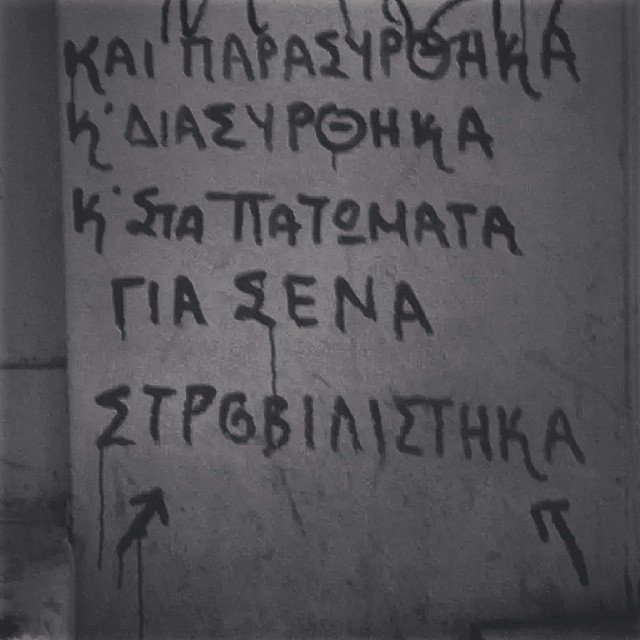 ΚΑΙ ΠΑΡΑΣΥΡΘΗΚΑ
Κ' ΔΙΑΣΥΡΘΗΚΑ
Κ' ΣΤΑ ΠΑΤΩΜΑΤΑ
ΓΙΑ ΣΕΝΑ
ΣΤΡΟΒΙΛΙΣΤΗΚΑ